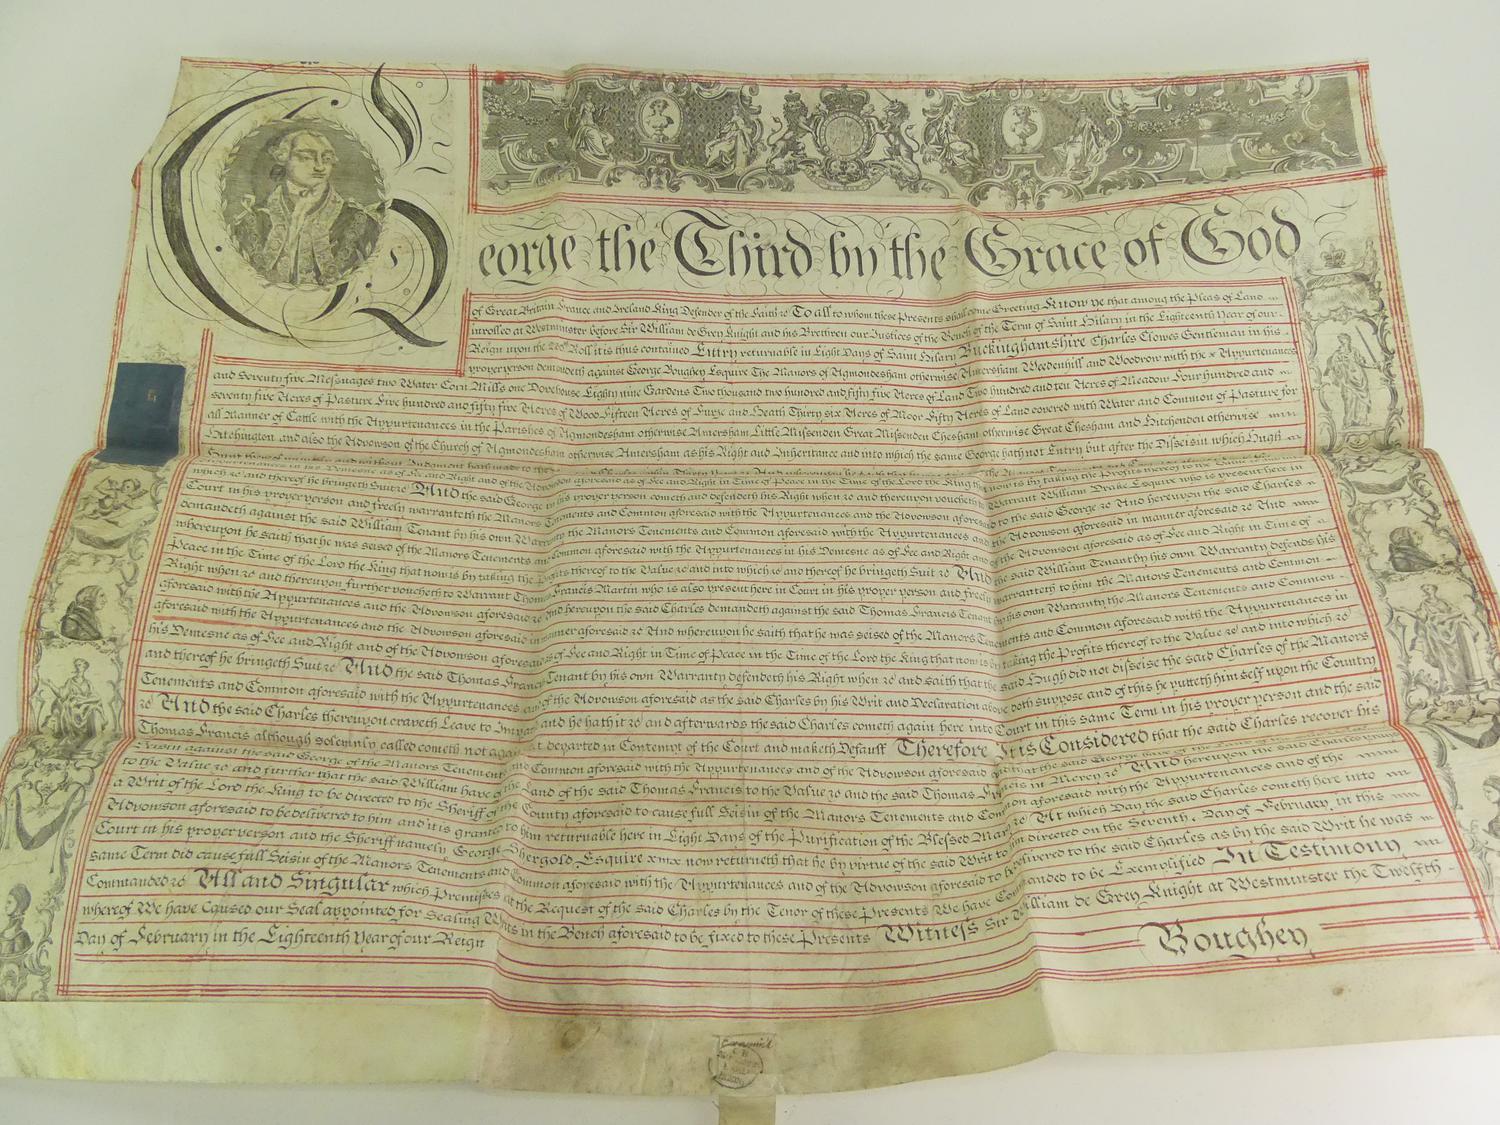 George the Third by the Grace of God
of Great Britain France and Ireland King Defender of the Faith &c To all to whom these Presents shall come Greeting Know ye that among the Pleas of Land
inrolled at Westminster before Sir William de Grey Knight and his Brethren our Justices of the Bench of the Term of Saint Hilary in the Eighteenth Year of our
Reign upon the Roll it is thus contained Entry returnable in Eight Days of Saint Hilary Buckinghamshire Charles Clowes Gentleman in his
proper person demandeth against George Boughey Esquire The Manors of Agmondesham otherwise Amersham Weedenhill and Woodrow with the Appurtenances
and Seventy five Messuages two Water Corn Mills one Dovehouse Eighty nine Gardens Two thousand two hundred and fifty five Acres of Land Two hundred and ten Acres of Meadow Four hundred and
seventy five Acres of Pasture Five hundred and fifty five Acres of Wood Fifteen Acres of Furze and Heath Thirty six Acres of Moor Fifty Acres of Land covered with Water and Common of Pasture for
all Manner of Cattle with the Appurtenances in the Parishes of Agmondesham otherwise Amersham Little Missenden Great Missenden Chesham otherwise Great Chesham and Hitchenden otherwise
Hitchington and also the Advowson of the Church of Agmondesham otherwise Amersham as his Right and Inheritance and into which the same George hath not Entry but after the Disseisin which Hugh
Hunt thereof unjustly and without Judgment hath made to the
which &c and thereof he bringeth Suit &c And the said George in his proper person cometh and defendeth his Right when &c and thereupon voucheth to Warrant William Drake Esquire who is present here in
Court in his proper person and freely warranteth the Manors Tenements and Common aforesaid with the Appurtenances and the Advowson aforesaid to the said George &c And hereupon the said Charles
demandeth against the said William Tenant by his own Warranty the Manors Tenements and Common aforesaid with the Appurtenances and the Advowson aforesaid in manner aforesaid &c And
whereupon he saith that he was seised of the Manors Tenements and Common aforesaid with the Appurtenances in his Demesne as of Fee and Right and of the Advowson aforesaid as of Fee and Right in Time of
Peace in the Time of the Lord the King that now is by taking the Profits thereof to the Value &c and into which &c and thereof he bringeth Suit &c And the said William Tenant by his own Warranty defends his
Right when &c and thereupon further voucheth to Warrant Thomas Francis Martin who is also present here in Court in his proper person and freely warranteth to him the Manors Tenements and Common
aforesaid with the Appurtenances and the Advowson aforesaid &c And hereupon the said Charles demandeth against the said Thomas Francis Tenant by his own Warranty the Manors Tenements and Common
aforesaid with the Appurtenances and the Advowson aforesaid in manner aforesaid &c And whereupon he saith that he was seised of the Manors Tenements and Common aforesaid with the Appurtenances in
his Demesne as of Fee and Right and of the Advowson aforesaid as of Fee and Right in Time of Peace in the Time of the Lord the King that now is by taking the Profits thereof to the Value &c and into which &c
and thereof he bringeth Suit &c And the said Thomas Francis Tenant by his own Warranty defendeth his Right when &c and saith that the said Hugh did not disseise the said Charles of the Manors
Tenements and Common aforesaid with the Appurtenances and of the Advowson aforesaid as the said Charles by his Writ and Declaration above doth suppose and of this he putteth himself upon the Country
&c And the said Charles thereupon craveth Leave to Imparl and he hath it &c and afterwards the said Charles cometh again here into Court in this same Term in his proper person and the said
Thomas Francis although solemnly called cometh not again but departed in Contempt of the Court and maketh Default Therefore It is Considered that the said Charles recover his
Seisin against the said George of the Manors Tenements and Common aforesaid with the Appurtenances and of the Advowson aforesaid and that the said George have of the Land of
to the Value &c and further that the said William have of the Land of the said Thomas Francis to the Value &c and the said Thomas Francis in Mercy &c And hereupon the said Charles prays
a Writ of the Lord the King to be directed to the Sheriff of the County aforesaid to cause full Seisin of the Manors Tenements and Common aforesaid with the Appurtenances and of the
Advowson aforesaid to be delivered to him and it is granted to him returnable here in Eight Days of the Purification of the Blessed Mary &c At which Day the said Charles cometh here into
Court in his proper person and the Sheriff namely George Shergold Esquire now returneth that he by virtue of the said Writ to him directed on the Seventh Day of February in this
same Term did cause full Seisin of the Manors Tenements and Common aforesaid with the Appurtenances and of the Advowson aforesaid to be delivered to the said Charles as by the said Writ he was
Commanded &c All and Singular which Premises at the Request of the said Charles by the Tenor of these Presents We have Commanded to be Exemplified In Testimony
whereof We have Caused our Seal appointed for Sealing Writs in the Bench aforesaid to be fixed to these Presents Witness Sir William de Grey Knight at Westminster the Twelfth
Day of February in the Eighteenth Year of our Reign
Boughey